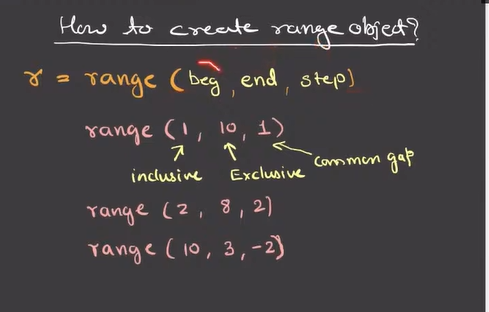 How to create range object?
r = range (beg, end, step)
range (1, 10, 1)
inclusive Exclusive common gap
range (2, 8, 2)
range (10, 3, -2)